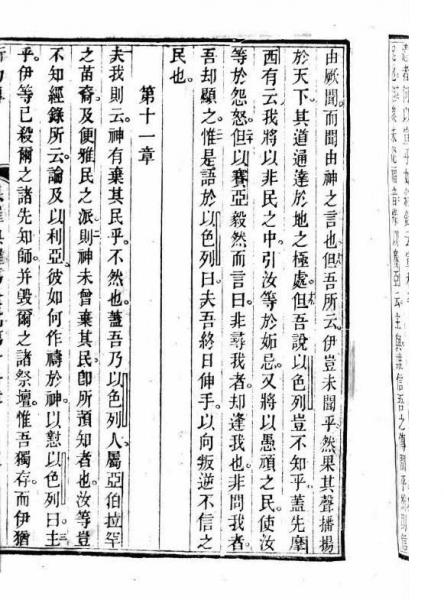 由厥聞。而聞由神之言也。但吾所云。伊豈未聞乎。然果其聲播揚
於天下。其道通達於地之極處。但吾說以色列豈不知乎。蓋先摩
西有云。我將以非民之中。引汝等於妬忌。又將以愚頑之民。使汝
等於怨怒。但以賽亞毅然而言曰。非尋我者。却逢我也。非問我者。
吾却顯之。惟是語於以色列曰。夫吾終日伸手。以向叛逆不信之
民也。
第十一章
夫我則云。神有棄其民乎。不然也。蓋吾乃以色列人。屬亞伯拉罕
之苗裔。及便雅民之派。則神未曾棄其民。卽所預知者也。汝等豈
不知經錄所云。論及以利亞。彼如何作禱於神。以懟以色列曰。主
乎。伊等已殺爾之諸先知師。并毀爾之諸祭壇。惟吾獨存。而伊猶